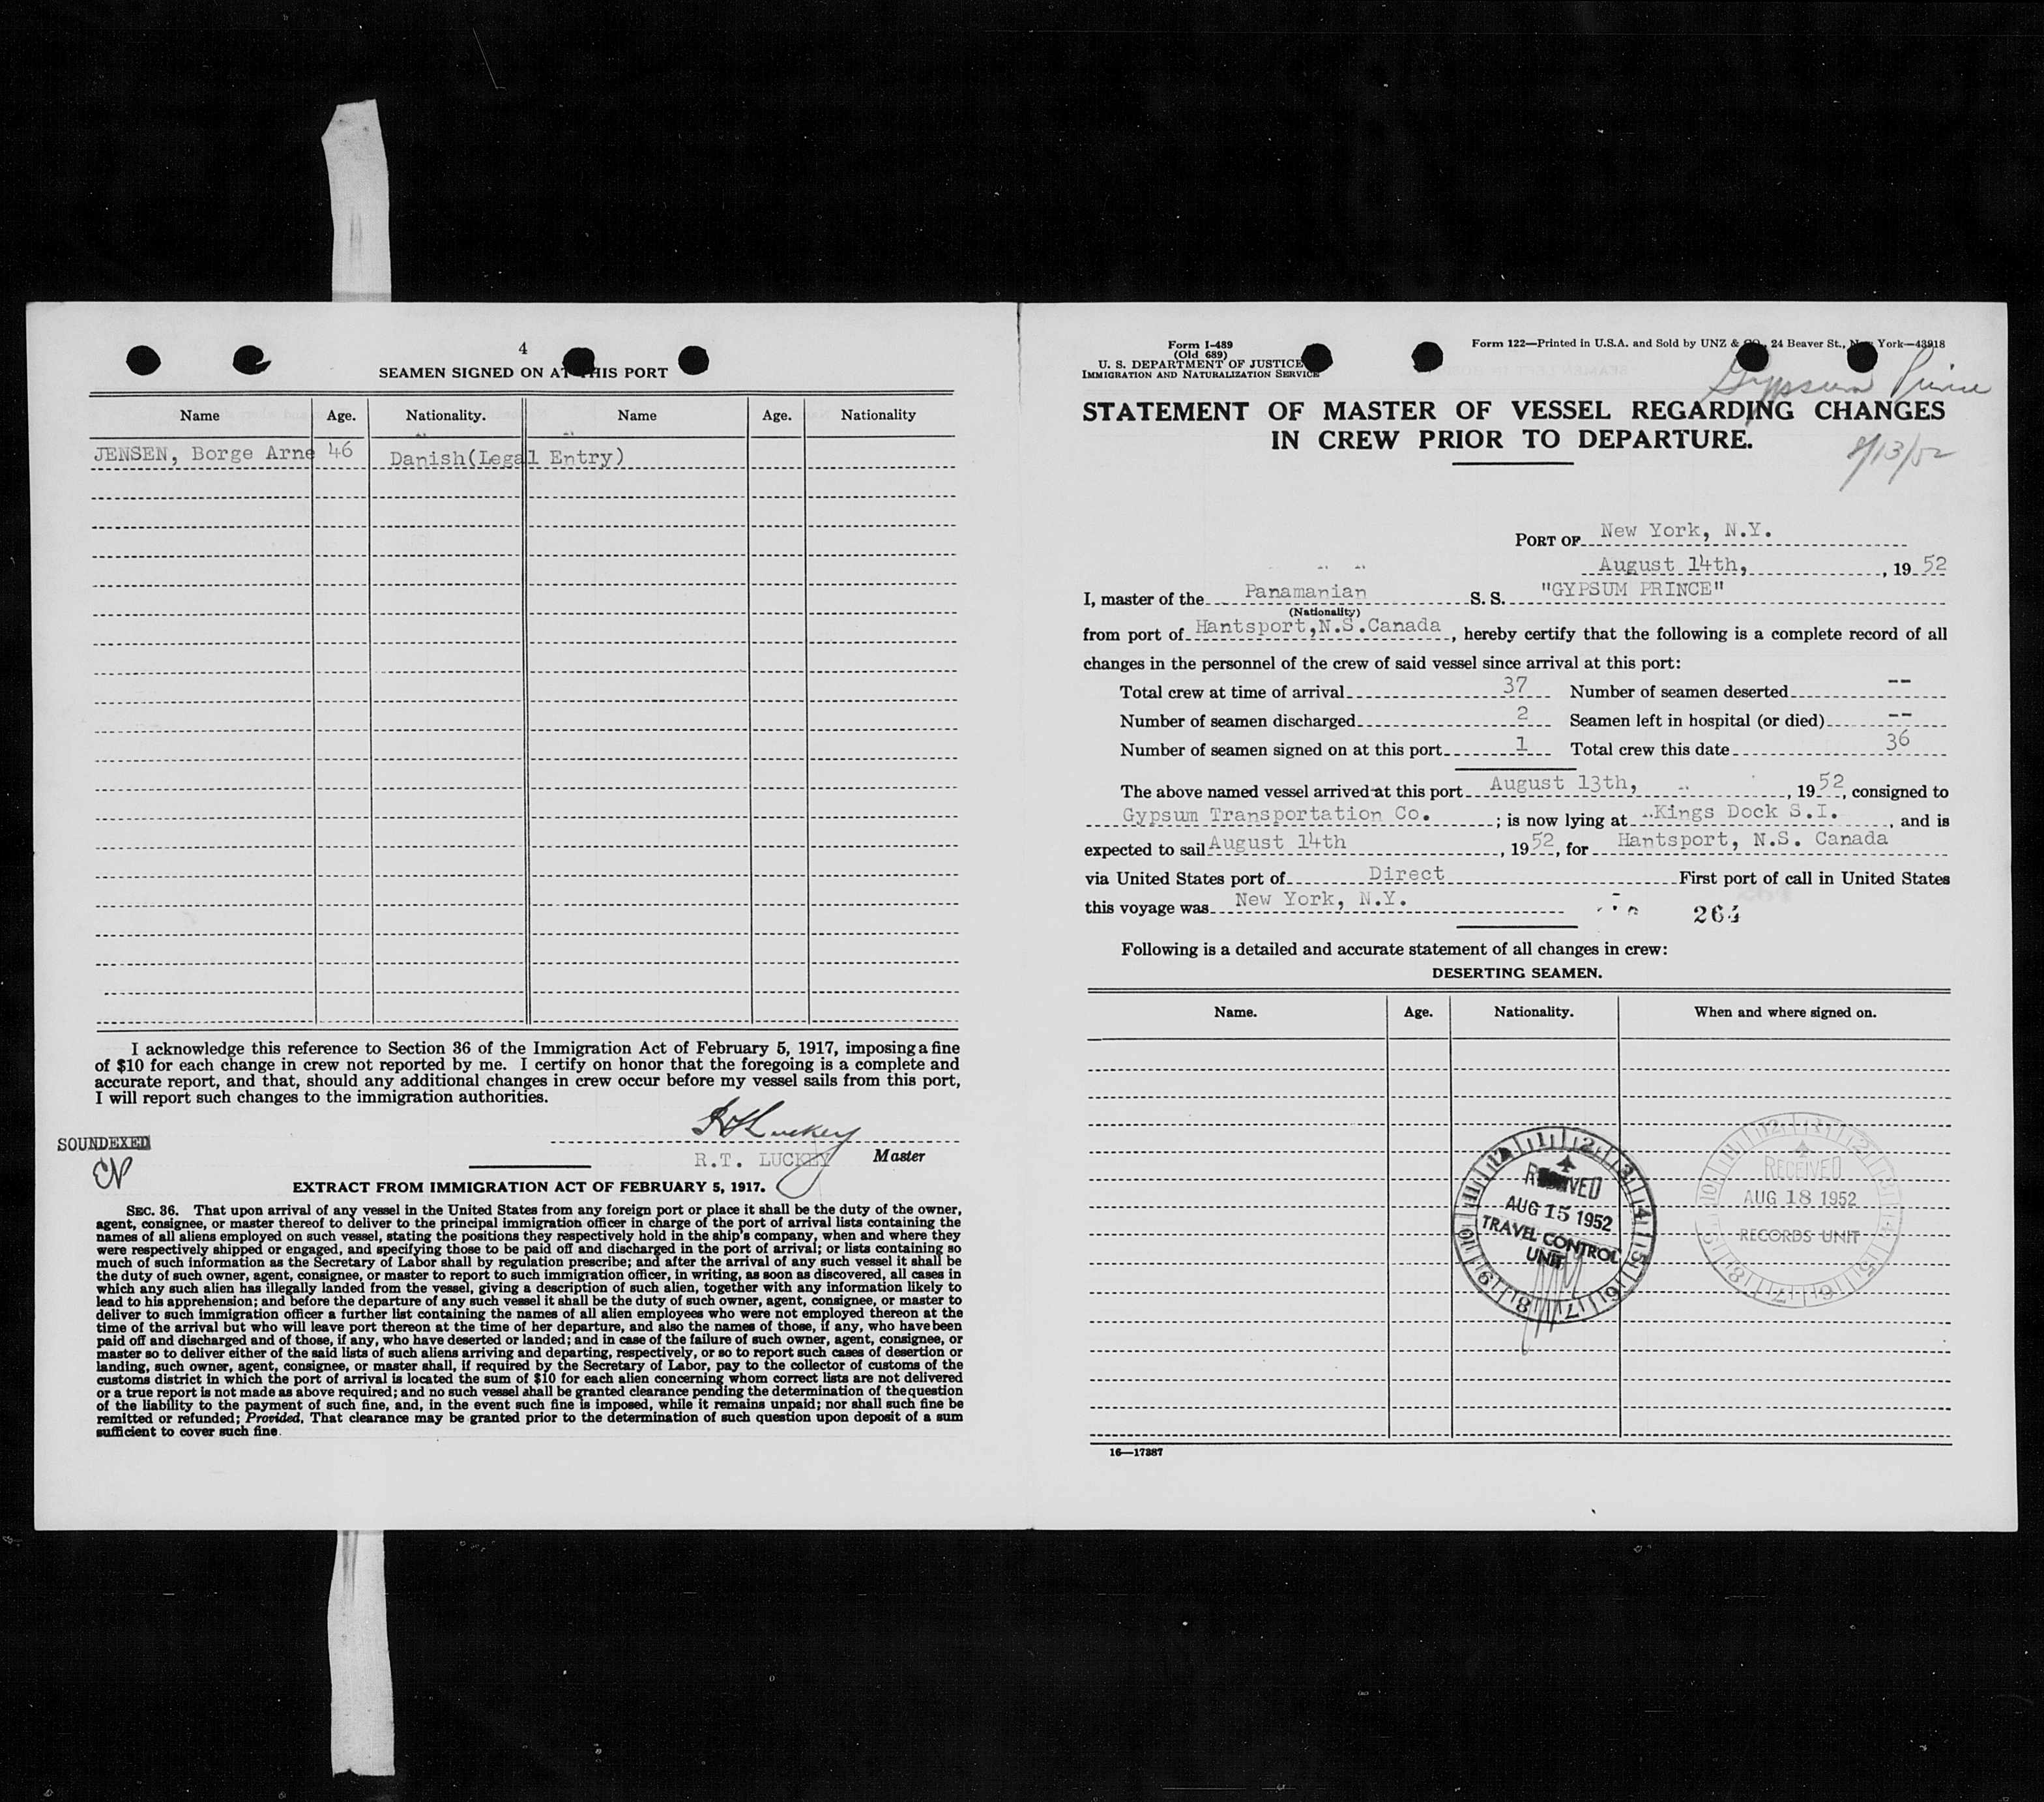 4
SEAMEN SIGNED ON AT THIS PORT
Name Age. Nationality. Name Age. Nationality
JENSEN, Borge Arne 46 Danish(Legal Entry)
I acknowledge this reference to Section 36 of the Immigration Act of February 5, 1917, imposing a fine
of $10 for each change in crew not reported by me. I certify on honor that the foregoing is a complete and
accurate report, and that, should any additional changes in crew occur before my vessel sails from this port,
I will report such changes to the immigration authorities.
SOUNDEXED
R.T. LUCKEY Master
EXTRACT FROM IMMIGRATION ACT OF FEBRUARY 5, 1917.
SEC. 36. That upon arrival of any vessel in the United States from any foreign port or place it shall be the duty of the owner,
agent, consignee, or master thereof to deliver to the principal immigration officer in charge of the port of arrival lists containing the
names of all aliens employed on such vessel, stating the positions they respectively hold in the ship's company, when and where they
were respectively shipped or engaged, and specifying those to be paid off and discharged in the port of arrival; or lists containing so
much of such information as the Secretary of Labor shall by regulation prescribe; and after the arrival of any such vessel it shall be
the duty of such owner, agent, consignee, or master to report to such immigration officer, in writing, as soon as discovered, all cases in
which any such alien has illegally landed from the vessel, giving a description of such alien, together with any information likely to
lead to his apprehension; and before the departure of any such vessel it shall be the duty of such owner, agent, consignee, or master to
deliver to such immigration officer a further list containing the names of all alien employees who were not employed thereon at the
time of the arrival but who will leave port thereon at the time of her departure, and also the names of those, if any, who have been
paid off and discharged and of those, if any, who have deserted or landed; and in case of the failure of such owner, agent, consignee, or
master so to deliver either of the said lists of such aliens arriving and departing, respectively, or so to report such cases of desertion or
landing, such owner, agent, consignee, or master shall, if required by the Secretary of Labor, pay to the collector of customs of the
customs district in which the port of arrival is located the sum of $10 for each alien concerning whom correct lists are not delivered
or a true report is not made as above required; and no such vessel shall be granted clearance pending the determination of the question
of the liability to the payment of such fine, and, in the event such fine is imposed, while it remains unpaid; nor shall such fine be
remitted or refunded; Provided, That clearance may be granted prior to the determination of such question upon deposit of a sum
sufficient to cover such fine.
Form I-489
(Old 689)
U. S. DEPARTMENT OF JUSTICE
IMMIGRATION AND NATURALIZATION SERVICE
Form 122—Printed in U.S.A. and Sold by UNZ & CO., 24 Beaver St., New York—43918
Gypsum Prince
STATEMENT OF MASTER OF VESSEL REGARDING CHANGES
IN CREW PRIOR TO DEPARTURE.
8/13/52
PORT OF New York, N.Y.
August 14th, , 19 52
I, master of the Panamanian S. S. "GYPSUM PRINCE"
(Nationality)
from port of Hantsport,N.S.Canada , hereby certify that the following is a complete record of all
changes in the personnel of the crew of said vessel since arrival at this port:
Total crew at time of arrival 37 Number of seamen deserted --
Number of seamen discharged 2 Seamen left in hospital (or died) --
Number of seamen signed on at this port 1 Total crew this date 36
The above named vessel arrived at this port August 13th, , 19 52, consigned to
Gypsum Transportation Co. ; is now lying at Kings Dock S.I. , and is
expected to sail August 14th , 19 52, for Hantsport, N.S. Canada
via United States port of Direct First port of call in United States
this voyage was New York, N.Y.
264
Following is a detailed and accurate statement of all changes in crew:
DESERTING SEAMEN.
Name. Age. Nationality. When and where signed on.
RECEIVED
AUG 15 1952
TRAVEL CONTROL
UNIT
RECEIVED
AUG 18 1952
RECORDS UNIT
16—17387